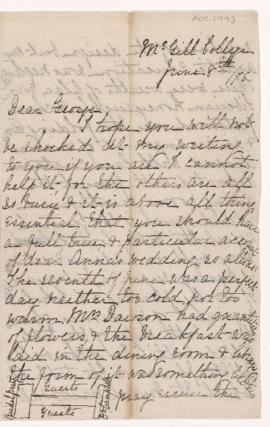 ACC. 1993
McGill College
June 8th /75
Dear George
I hope you will not
be shocked at my writing
to you if you are I cannot
help it for the others are all
so busy & it is above all things
essential that you should have
a full true & particular account
of dear Anna's wedding, so allons!
The seventh of June was a perfect
day neither too cold not too
warm, Mrs Dawson had quantities
of flowers, & the breakfast was
laid in the dining room &
the form of it was something
Guests
Guests
pray excuse the